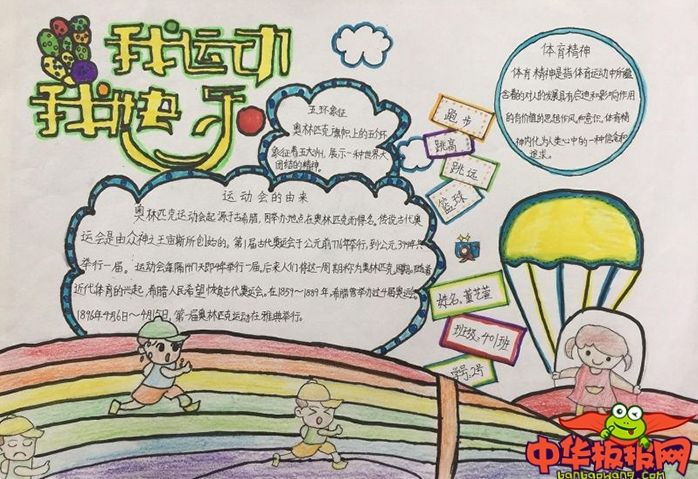 我运动
我快乐
五环象征
奥林匹克旗帜上的五个环
象征着五大洲，展示一种世界大
团结的精神。
跑步
跳高
跳远
篮球
体育精神
体育精神是指体育运动中所蕴
含着的对人的发展具有启迪和影响作用
的有价值的思想作风和意识，体育精
神内化为人类心中的一种信念和
追求。
运动会的由来
奥林匹克运动会起源于古希腊，因举办地点在奥林匹克而得名。传说古代奥
运会是由众神之王宙斯所创始的，第1届古代奥运会于公元前776年举行，到公元394年
举行一届。运动会每隔1417天即4年举行一届。后来人们将这一周期称为奥林匹克周期。随着
近代体育的兴起，希腊人民希望恢复古代奥运会。在1859～1889年，希腊曾举办过4届奥运会。
1896年4月6日～4月15日，第一届奥林匹克运动在雅典举行。
姓名：董艺萱
班级：401班
学号：2号
中华板报网
banbaowang.com